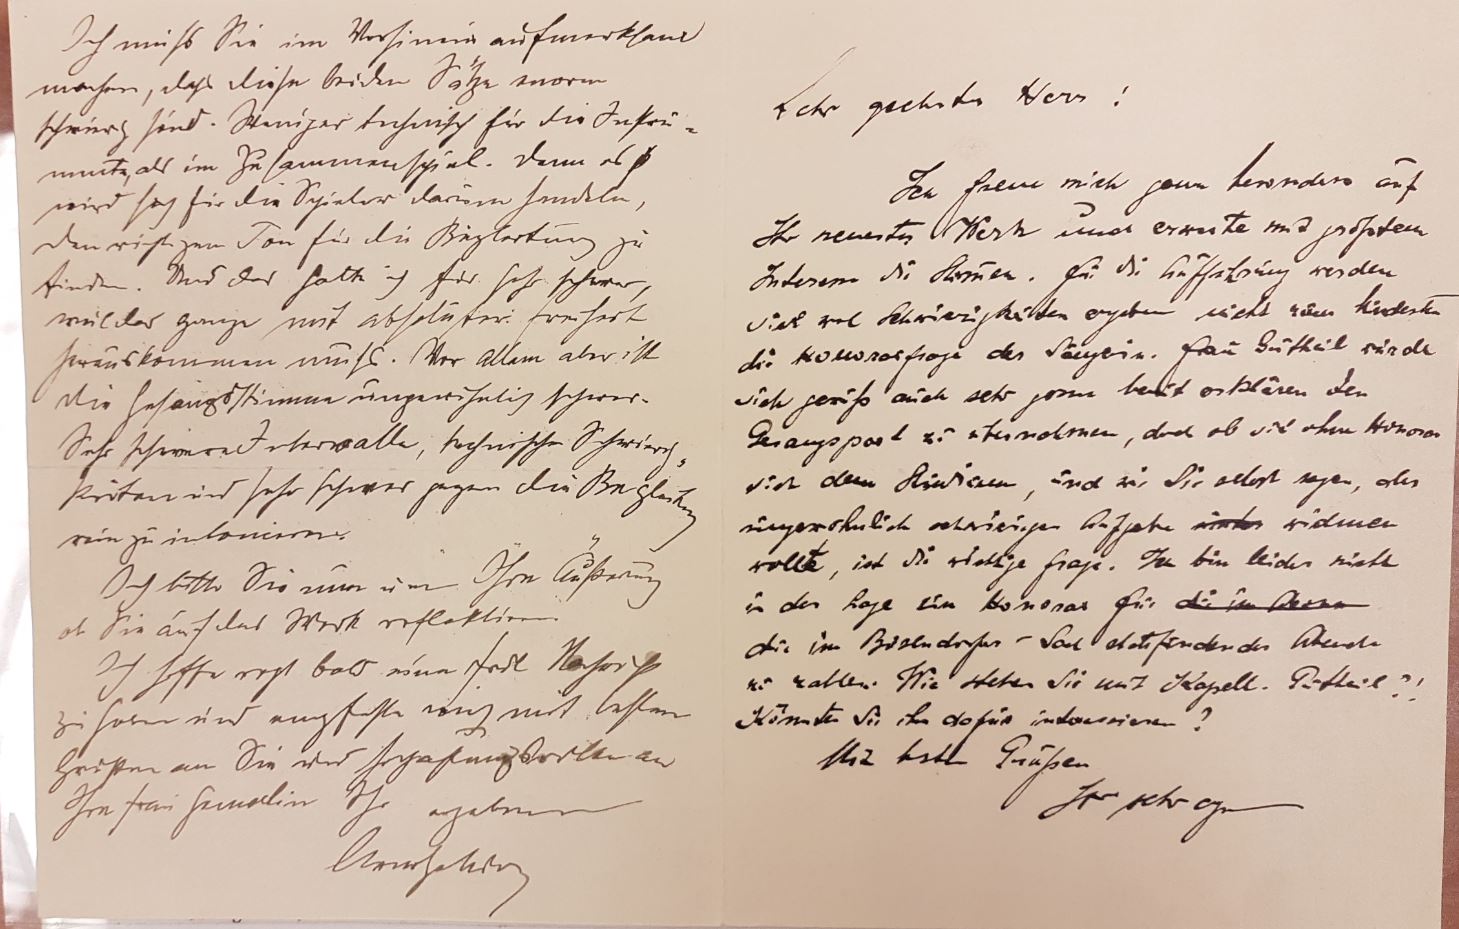 Ich muss Sie im Vorhinein aufmerksam
machen, dass diese beiden Sätze enorm
schwierig sind. Weniger technisch für die Instru-
mente, als im Zusammenspiel. Denn es
wird sich für die Spieler darum handeln,
den richtigen Ton für die Begleitung zu
finden. Und das halte ich für sehr schwer,
weil das ganze mit absoluter Freiheit
herauskommen muss. Vor allem aber ist
die Gesangsstimme ungewöhnlich schwer.
Sehr schwere Intervalle, technische Schwierig-
keiten und sehr schwer gegen die Begleitung
rein zu intonieren.
Ich bitte Sie nun um Ihre Äußerung
ob Sie auf das Werk reflektieren.
Ich hoffe recht bald eine Nachricht
zu haben und empfehle mich mit besten
Grüßen an Sie und hochachtungsvollen an
Ihre Frau Gemalin Ihr ergebener
Sehr geehrter Herr!
Ich freue mich ganz besonders auf
Ihr neuestes Werk und erwarte mit größtem
Interesse die Stimmen. Für die Aufführung werden
sich wol Schwierigkeiten ergeben nicht zum mindesten
die Honorarfrage der Sängerin. Frau Gutheil würde
sich gewiß auch sehr gerne bereit erklären den
Gesangspart zu übernehmen, doch ob sie ohne Honorar
sich dem Studium, und wie Sie selbst sagen, der
ungewöhnlich schwierigen Aufgabe widmen
wollte, ist die wichtige Frage. Ich bin leider nicht
in der Lage ein Honorar für die im
die im Bösendorfer-Saal stattfindenden Abende
zu zahlen. Wie stehen Sie mit Kapell. Gutheil?!
Könnten Sie ihn dafür interessieren?
Mit besten Grüßen
Ihr sehr erg